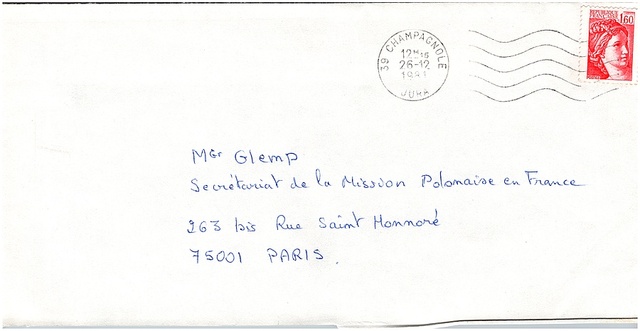 39 CHAMPAGNOLE
12H15
26-12
1981
JURA
REPUBLIQUE
FRANÇAISE
1,60
Mgr Glemp
Secrétariat de la Mission Polonaise en France
263 bis Rue Saint Honnoré
75001 PARIS.